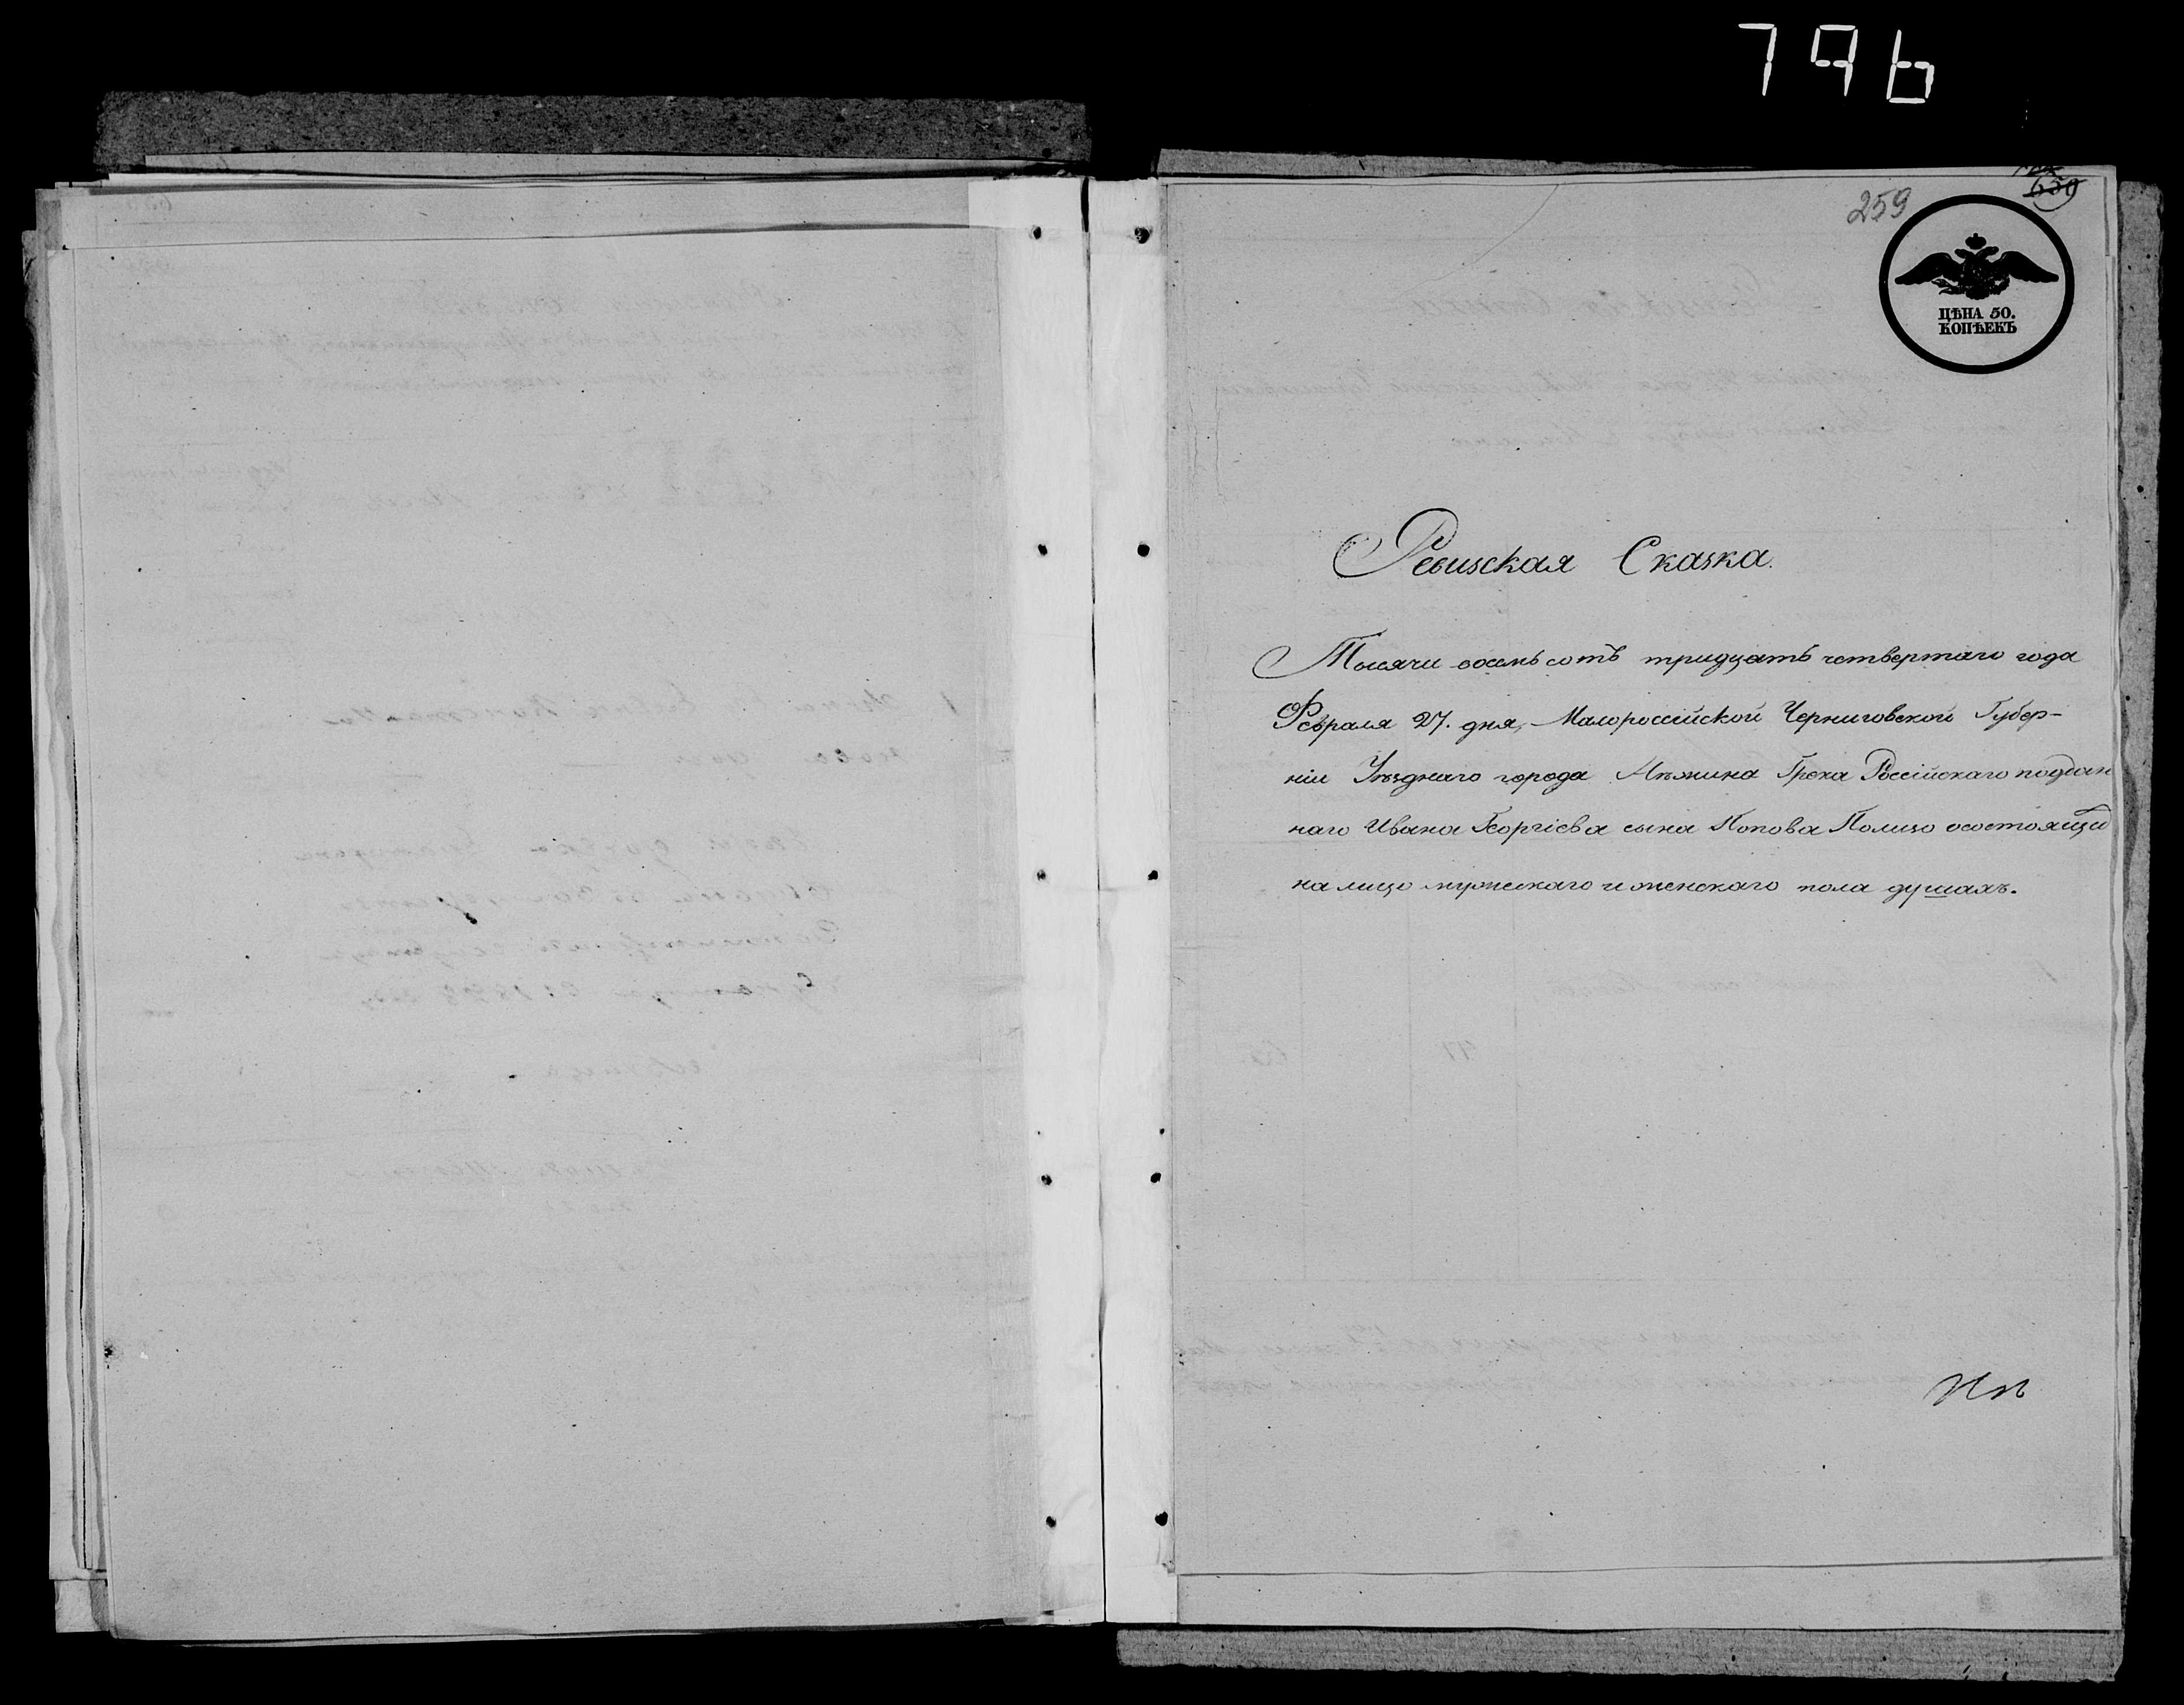 796
259
659
ЦѢНА 50.
КОПѢЕКЪ
Ревизская Сказка.
Тысячи восемь сотъ тридцать четвертаго года
Февраля 27. дня, Малороссійской Черниговской Губер-
ніи Уѣзднаго города Нѣжина Грека Россійскаго поддан
наго Ивана Георгіева сына Попова Полизо осостоящи
на лицо мужескаго и женскаго пола душахъ.